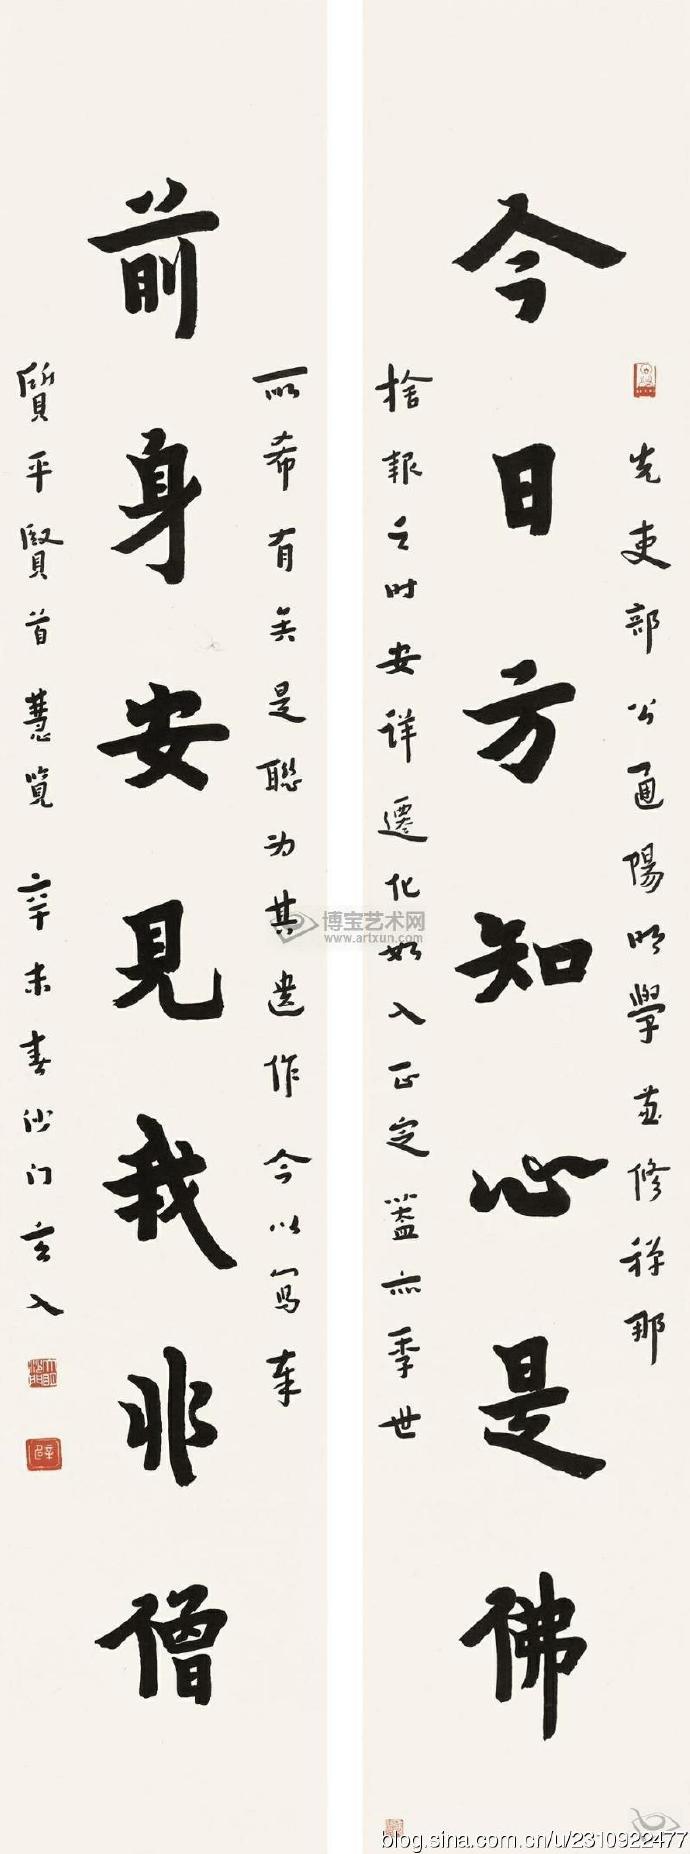 今日方知心是佛
先吏部公通陽明學兼修禪那
捨報之时安详遷化如入正定蓋亦季世
前身安見我非僧
所希有矣是聯为其遗作今以寫奉
質平賢首慧覽 辛未春沙门玄入
博宝艺术网
www.artxun.com
blog.sina.com.cn/u/2310922477